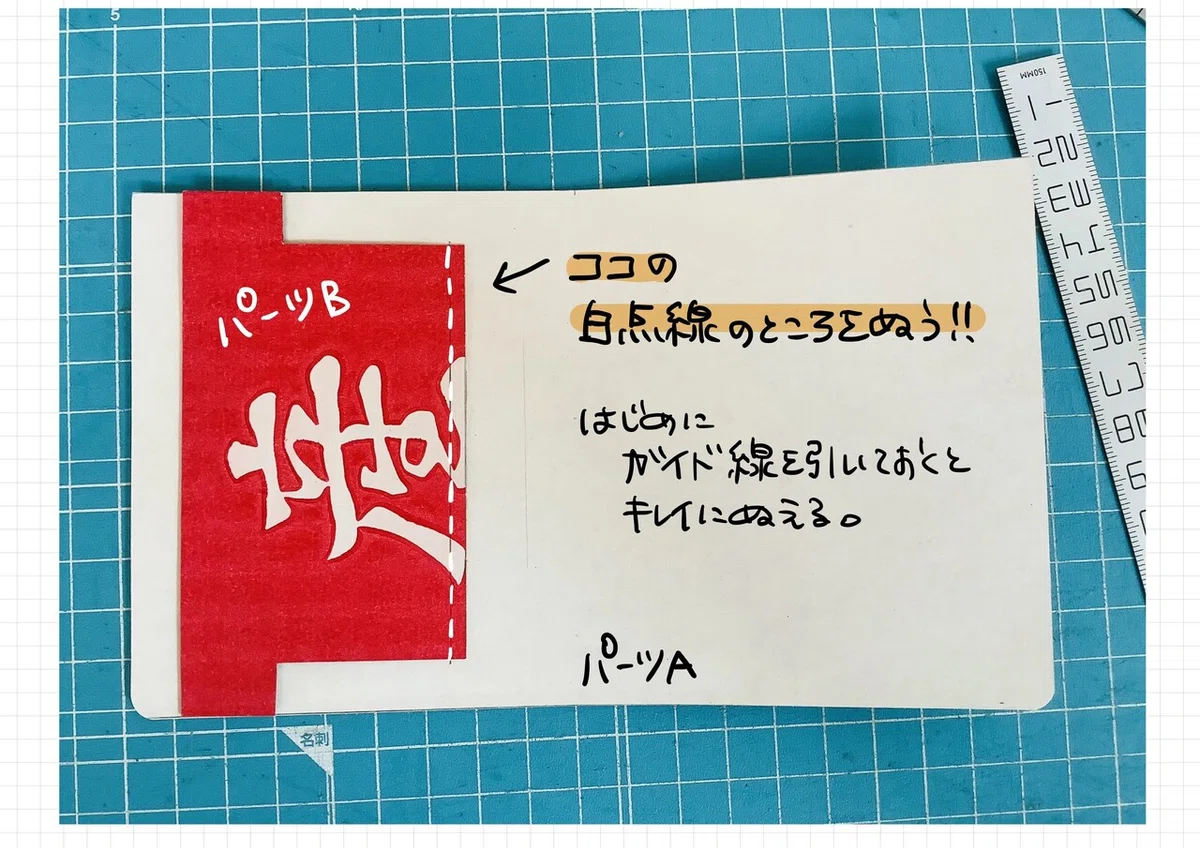 5
150MM
1
2
3
4
5
6
7
8
9
パーツB
ココの
白点線のところをぬう!!
はじめに
ガイド線を引いておくと
キレイにぬえる。
パーツA
名刺